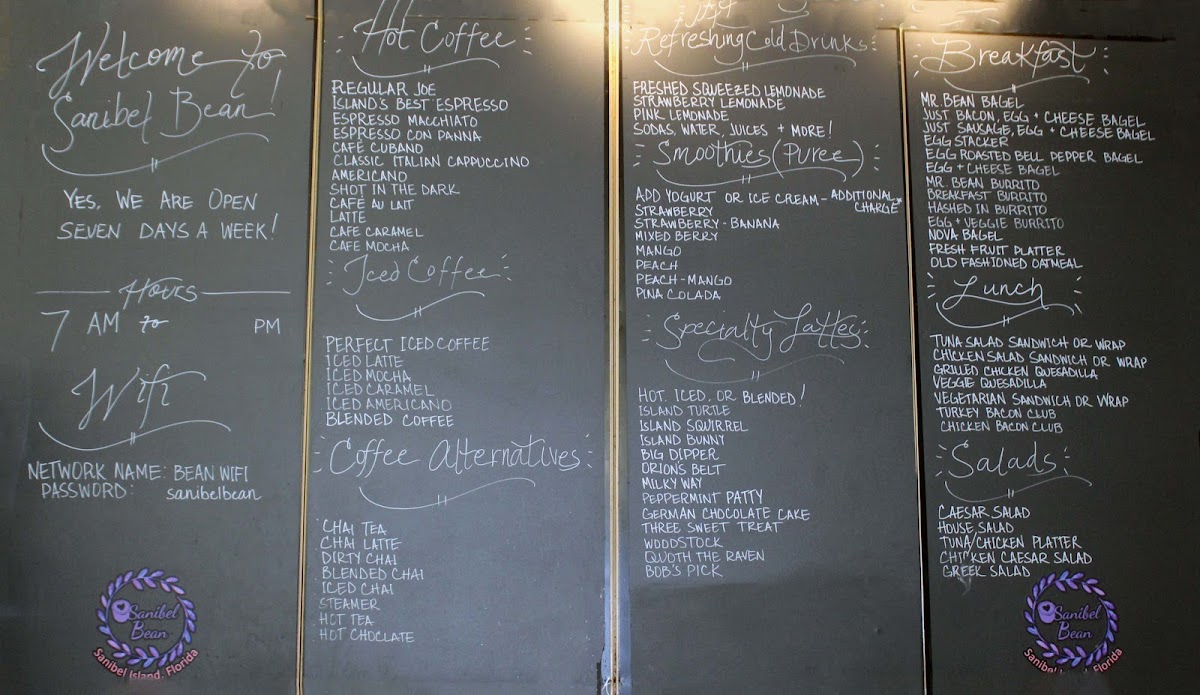 Welcome to
Sanibel Bean!
YES, WE ARE OPEN
SEVEN DAYS A WEEK!
HOURS
7 AM to PM
Wifi
NETWORK NAME: BEAN WIFI
PASSWORD: sanibelbean
Sanibel
Bean
Sanibel Island, Florida
Hot Coffee
REGULAR JOE
ISLAND'S BEST ESPRESSO
ESPRESSO MACCHIATO
ESPRESSO CON PANNA
CAFÉ CUBANO
CLASSIC ITALIAN CAPPUCCINO
AMERICANO
SHOT IN THE DARK
CAFÉ AU LAIT
LATTE
CAFE CARAMEL
CAFE MOCHA
Iced Coffee
PERFECT ICED COFFEE
ICED LATTE
ICED MOCHA
ICED CARAMEL
ICED AMERICANO
BLENDED COFFEE
Coffee Alternatives
CHAI TEA
CHAI LATTE
DIRTY CHAI
BLENDED CHAI
ICED CHAI
STEAMER
HOT TEA
HOT CHOCLATE
Refreshing Cold Drinks
FRESHED SQUEEZED LEMONADE
STRAWBERRY LEMONADE
PINK LEMONADE
SODAS, WATER, JUICES + MORE!
Smoothies (PUREE)
ADD YOGURT OR ICE CREAM - ADDITIONAL CHARGE*
STRAWBERRY
STRAWBERRY - BANANA
MIXED BERRY
MANGO
PEACH
PEACH - MANGO
PINA COLADA
Specialty Lattes
HOT, ICED, OR BLENDED!
ISLAND TURTLE
ISLAND SQUIRREL
ISLAND BUNNY
BIG DIPPER
ORION'S BELT
MILKY WAY
PEPPERMINT PATTY
GERMAN CHOCOLATE CAKE
THREE SWEET TREAT
WOODSTOCK
QUOTH THE RAVEN
BOB'S PICK
Breakfast
MR. BEAN BAGEL
JUST BACON, EGG + CHEESE BAGEL
JUST SAUSAGE, EGG + CHEESE BAGEL
EGG STACKER
EGG ROASTED BELL PEPPER BAGEL
EGG + CHEESE BAGEL
MR. BEAN BURRITO
BREAKFAST BURRITO
HASHED IN BURRITO
EGG + VEGGIE BURRITO
NOVA BAGEL
FRESH FRUIT PLATTER
OLD FASHIONED OATMEAL
Lunch
TUNA SALAD SANDWICH OR WRAP
CHICKEN SALAD SANDWICH OR WRAP
GRILLED CHICKEN QUESADILLA
VEGGIE QUESADILLA
VEGETARIAN SANDWICH OR WRAP
TURKEY BACON CLUB
CHICKEN BACON CLUB
Salads
CAESAR SALAD
HOUSE SALAD
TUNA/CHICKEN PLATTER
CHICKEN CAESAR SALAD
GREEK SALAD
Sanibel
Bean
Sanibel Florida